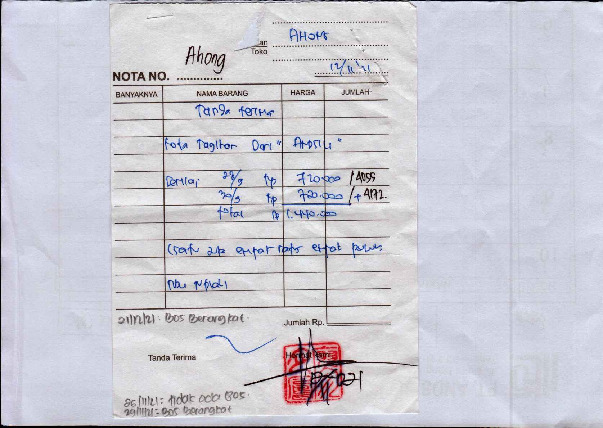 Tuan
Toko
AHONG
Ahong
12/11'21
NOTA NO. ............
BANYAKNYA NAMA BARANG HARGA JUMLAH
Tanda terima
Nota Tagihan Dari "
28/9 Rp 720.000 / 4055
30/9 Rp 720.000 / + 4172
total Rp 1.440.000
(satu juta empat ratus empat puluh
ribu rupiah)
21/12/21 : BOS Berangkat.
Jumlah Rp.
Tanda Terima
Hormat kami
25/11/21 : tidak ada BOS.
29/11/21 : BOS Berangkat